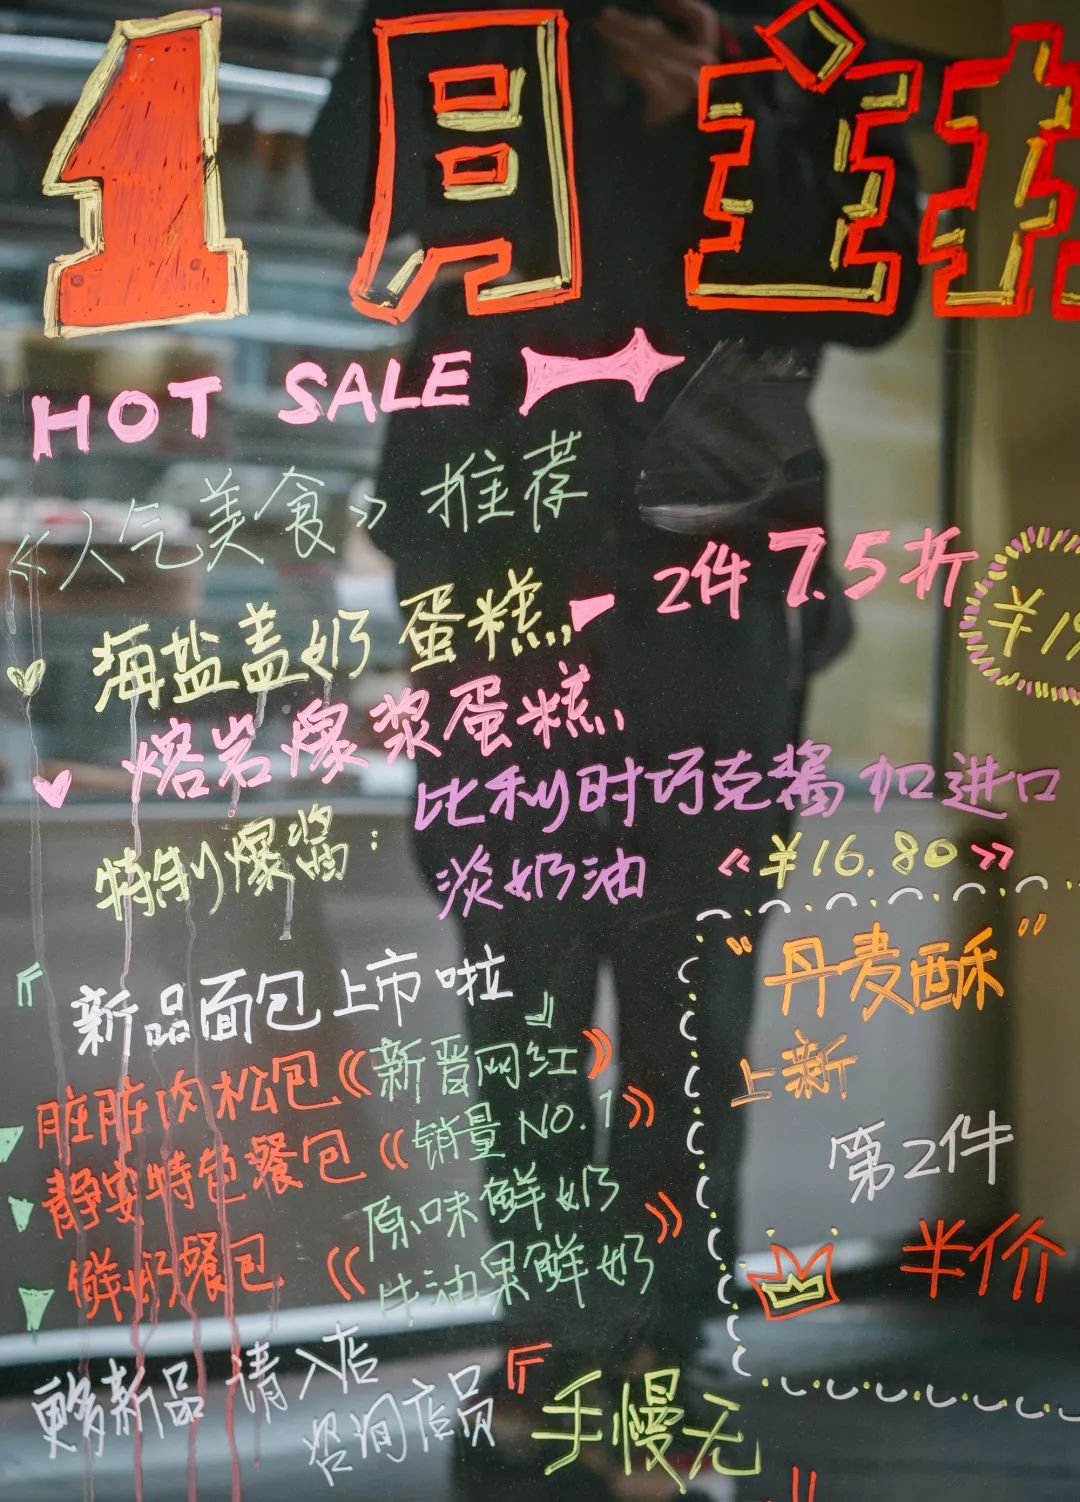 1月
HOT SALE
《人气美食》推荐
2件7.5折
¥19
海盐盖奶蛋糕
熔岩爆浆蛋糕
特制爆酱：比利时巧克酱加进口
淡奶油
《¥16.80》
『新品面包上市啦』
脏脏肉松包《新晋网红》
静安特色餐包《销量NO.1》
鲜奶餐包《原味鲜奶
牛油果鲜奶》
更多新品请入店
咨询店员
『手慢无
"丹麦酥"
上新
第2件
半价